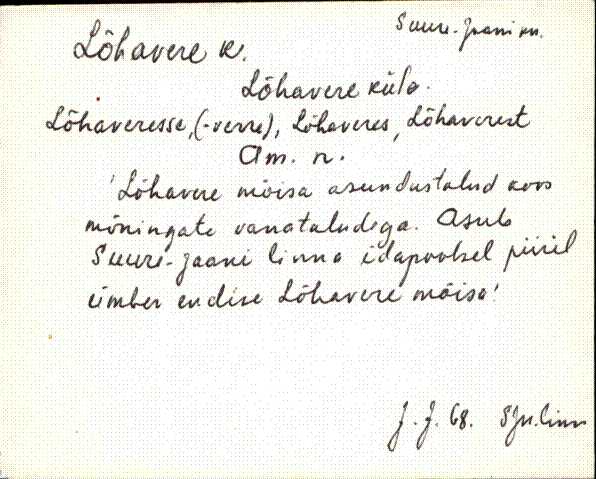 Suure-Jaani kn.
Lõhavere k.
Lõhavere küla.
Lõhaveresse, (-verre), Lõhaveres, Lõhaverest
Am. n.
'Lõhavere mõisa asundustalud koos
mõningate vanataludega. Asub
Suure-Jaani linna idapoolsel piiril
ümber endise Lõhavere mõisa'
J. J. 68. SJn. linn